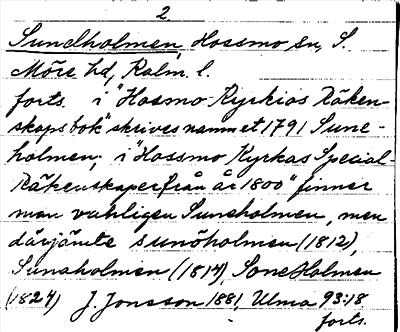 2.
Sundholmen, Hossmo sn, S.
Möre hd, Kalm. l.
forts. i "Hossmo Kyrkios Räken-
skaps bok" skrives namnet 1791 Sune-
holmen; i "Hossmo Kyrkas Special-
Räkenskaper från år 1800" finner
man vanligen Suneholmen, men
därjämte Sunöholmen (1812),
Sunaholmen (1814), Sone Holmen
(1824) J. Jonsson 1881, Ulma 93:18
forts.